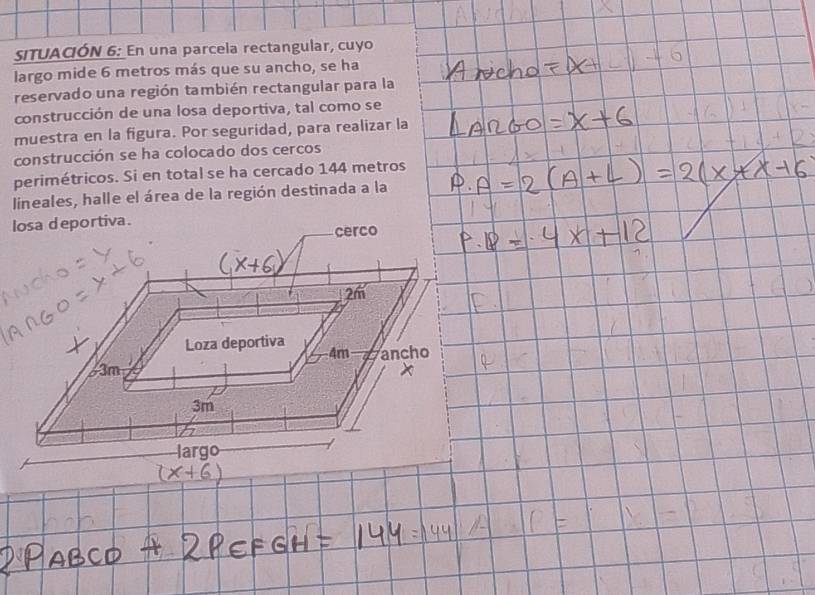 SITUACIÓN 6: En una parcela rectangular, cuyo
largo mide 6 metros más que su ancho, se ha
reservado una región también rectangular para la
construcción de una losa deportiva, tal como se
muestra en la figura. Por seguridad, para realizar la
construcción se ha colocado dos cercos
perimétricos. Si en total se ha cercado 144 metros
lineales, halle el área de la región destinada a la
losa deportiva.
cerco
(x+6)
Ancho = x
LARGO = x+6
x
2m
Loza deportiva
4m
ancho
x
3m
3m
largo
(x+6)
Ancho = x+
LARGO = x+6
P.A = 2(A+L) = 2(x+x+6
P.P = 4x+12
2PABCD + 2PEFGH = 144 = 144